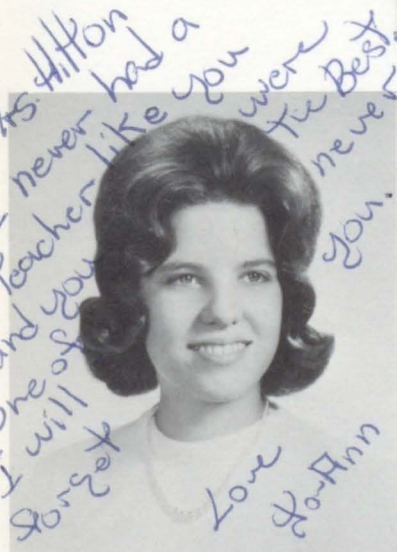 Mrs. Hilton
I never had a
Teacher like you
and you were
one of the Best.
I will never
forget you.
Love
LouAnn